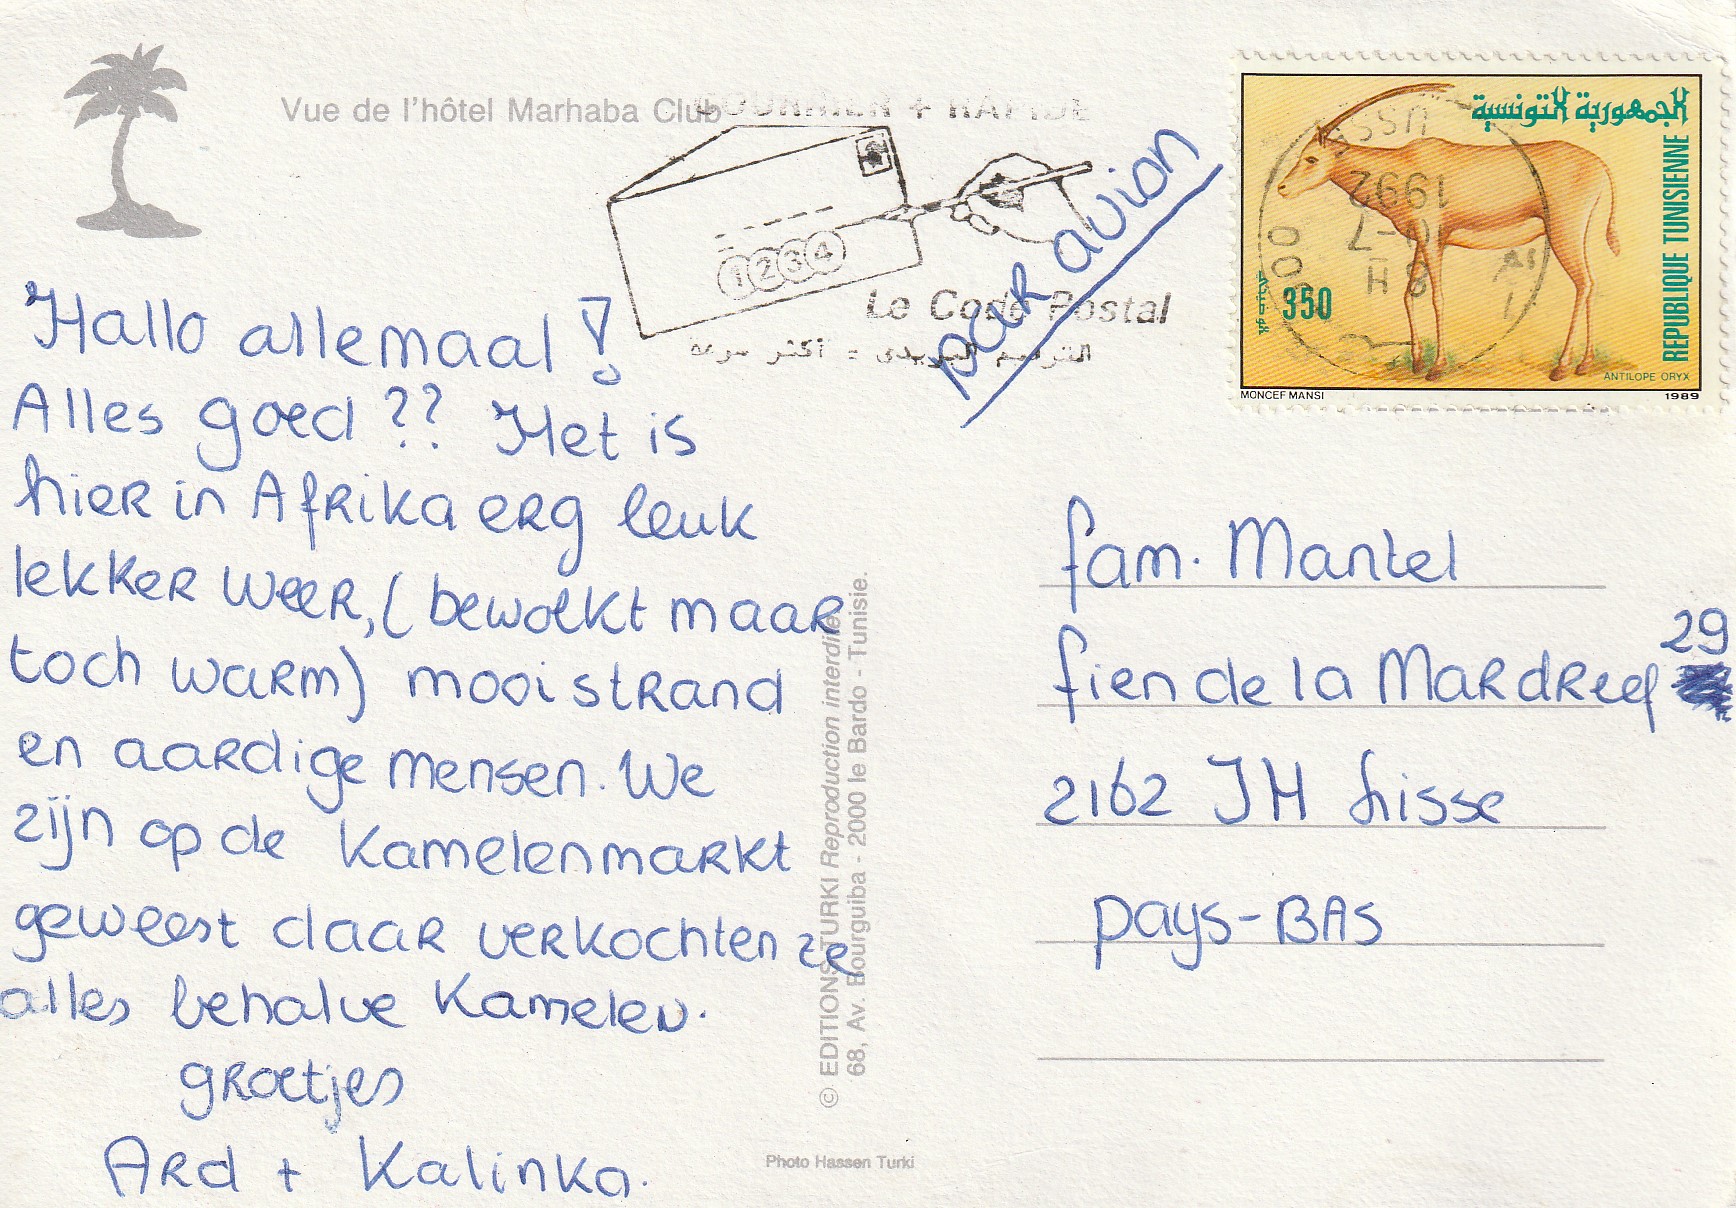 Vue de l'hôtel Marhaba Club
+ RAPIDE
1234
Le Code Postal
الترقيم البريدي = أكثر سرعة
par avion
الجمهورية التونسية
REPUBLIQUE TUNISIENNE
350
ANTILOPE ORYX
MONCEF MANSI
1989
1992
10-7
8H
Hallo allemaal!
Alles goed ?? Het is
hier in Afrika erg leuk
lekker weer, (bewolkt maar
toch warm) mooi strand
en aardige mensen. We
zijn op de Kamelenmarkt
geweest daar verkochten ze
alles behalve Kamelen.
groetjes
Ard + Kalinka.
© EDITIONS TURKI Reproduction interdite.
68, Av. Bourguiba - 2000 le Bardo - Tunisie.
Photo Hassen Turki
fam. Mantel
fien de la Mardreef 29
2162 JH Lisse
Pays-BAS